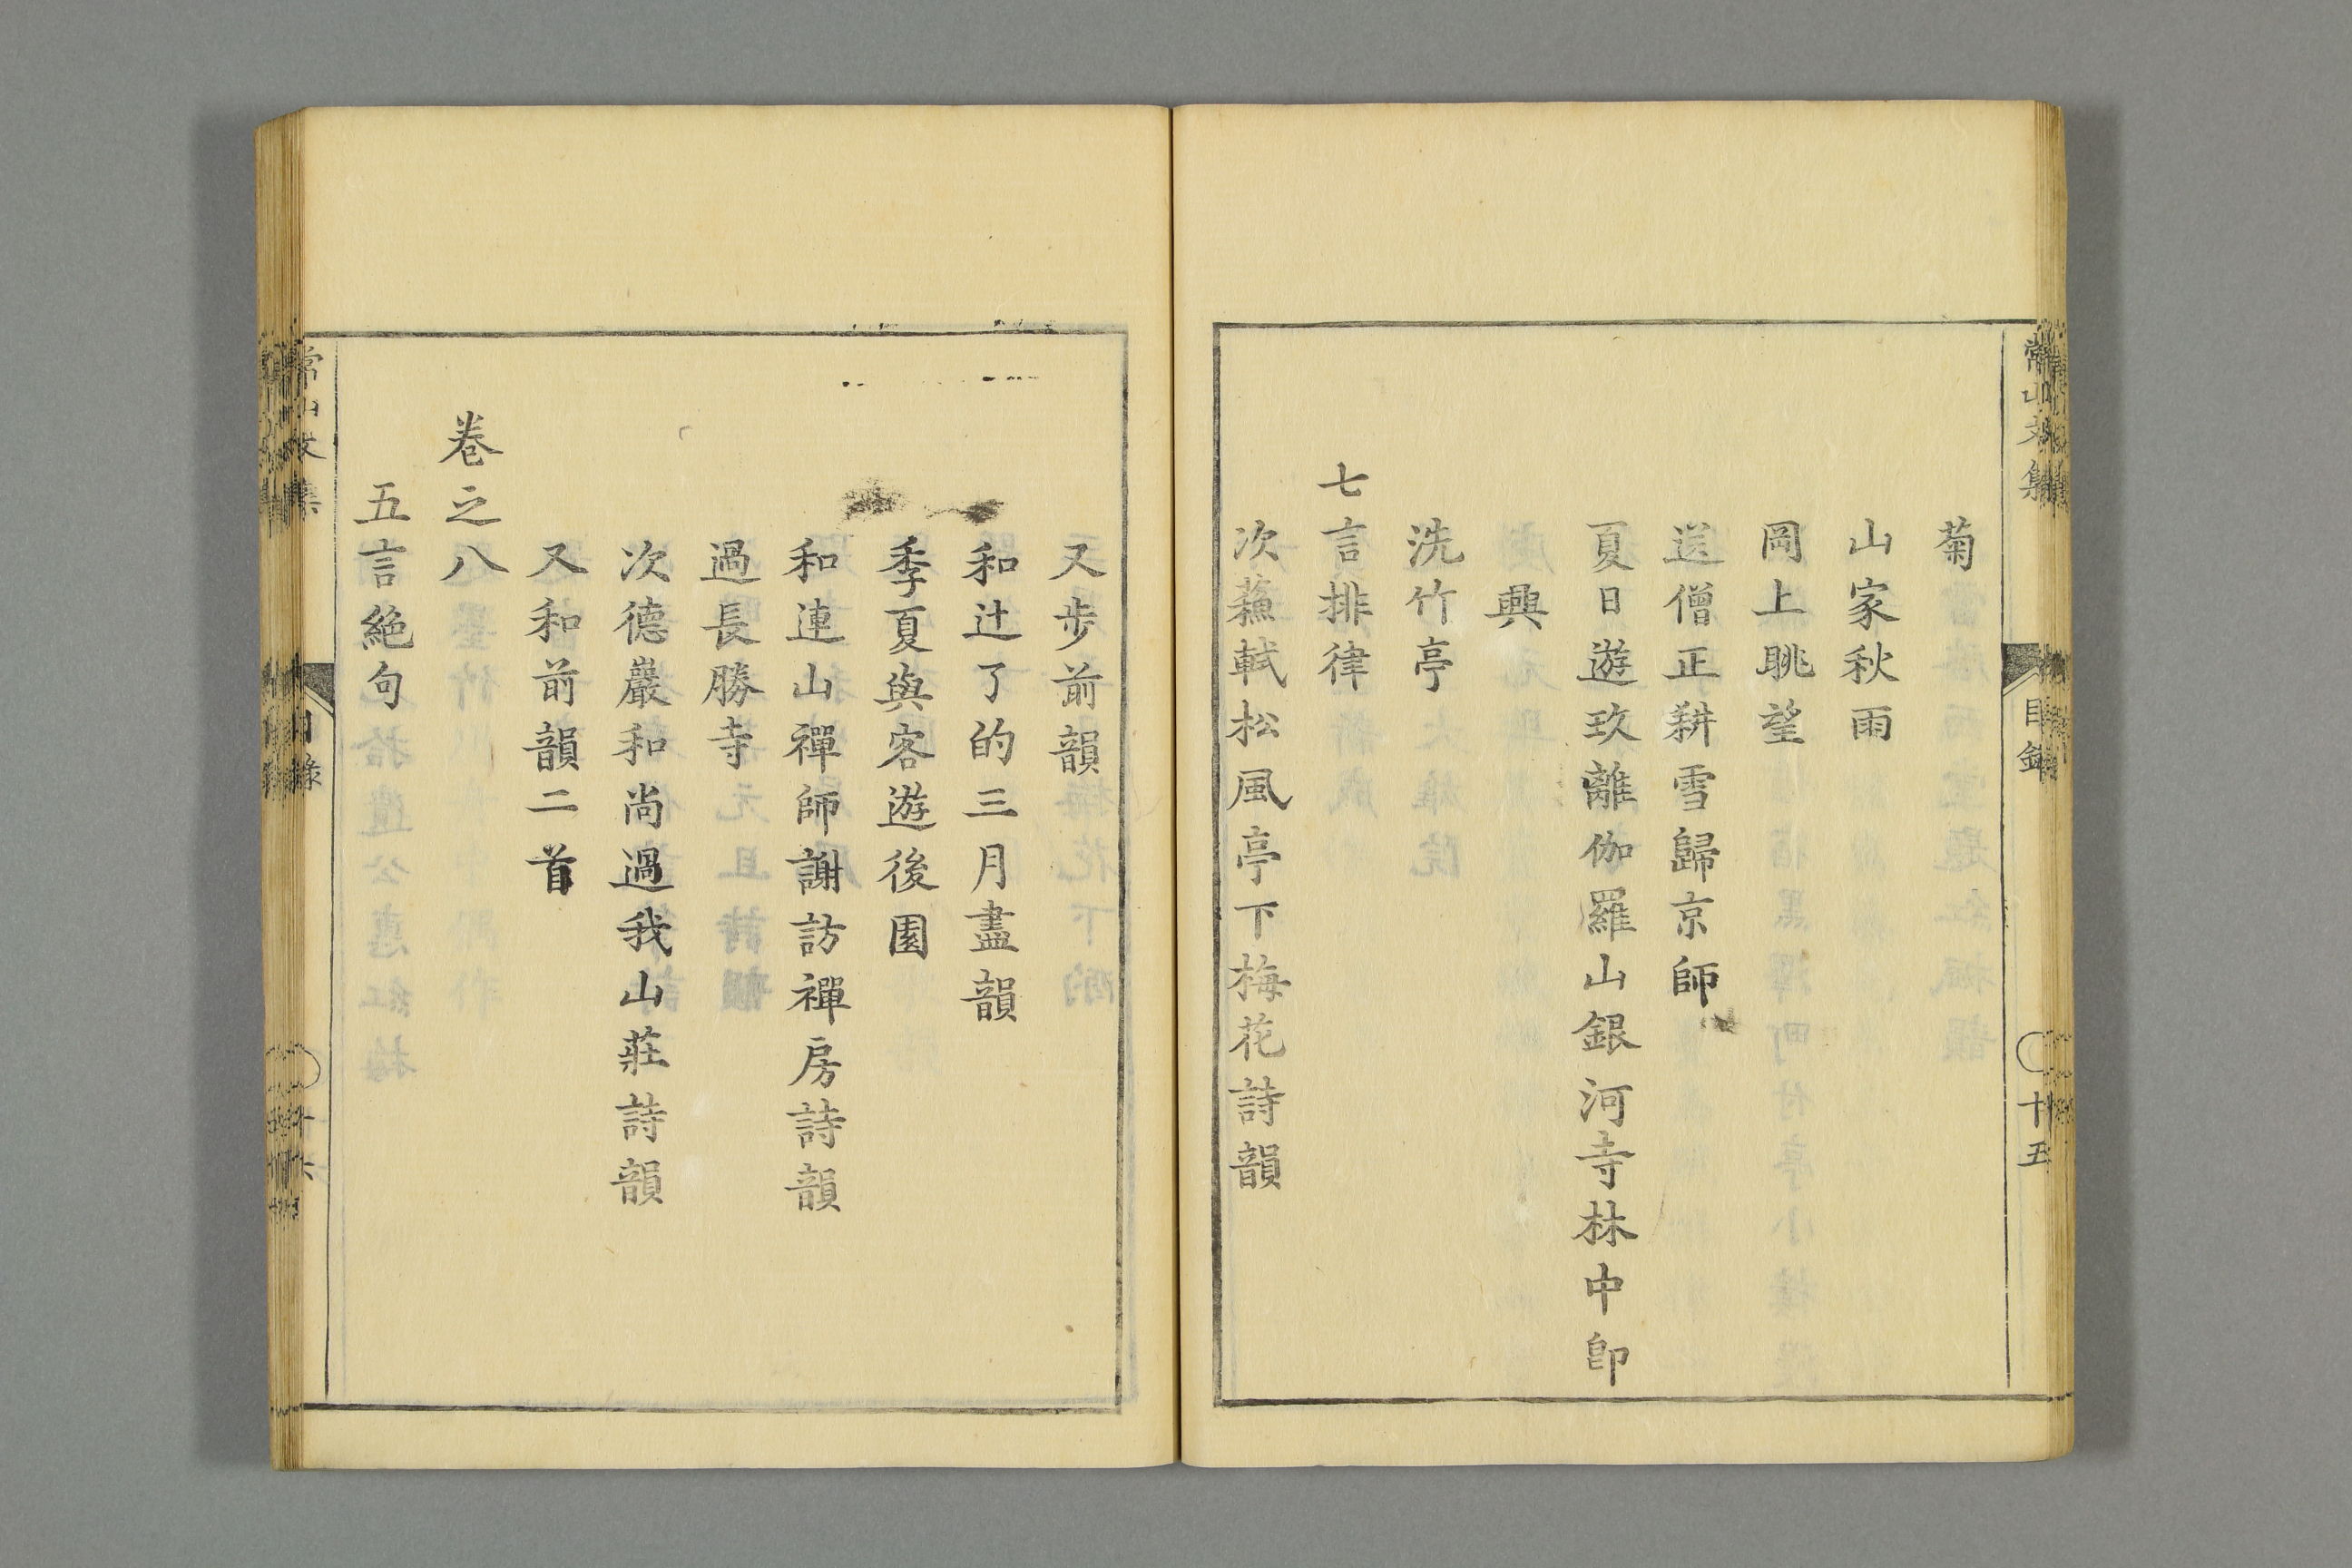 常山文集
目錄
十五
菊
山家秋雨
岡上眺望
送僧正耕雪歸京師
夏日遊玖離伽羅山銀河寺林中即
興
洗竹亭
七言排律
次蘓軾松風亭下梅花詩韻
又步前韻
和辻了的三月盡韻
季夏與客遊後園
和連山禪師謝訪禪房詩韻
過長勝寺
次德巖和尚過我山莊詩韻
又和前韻二首
卷之八
五言絕句
常山文集
目錄
十六